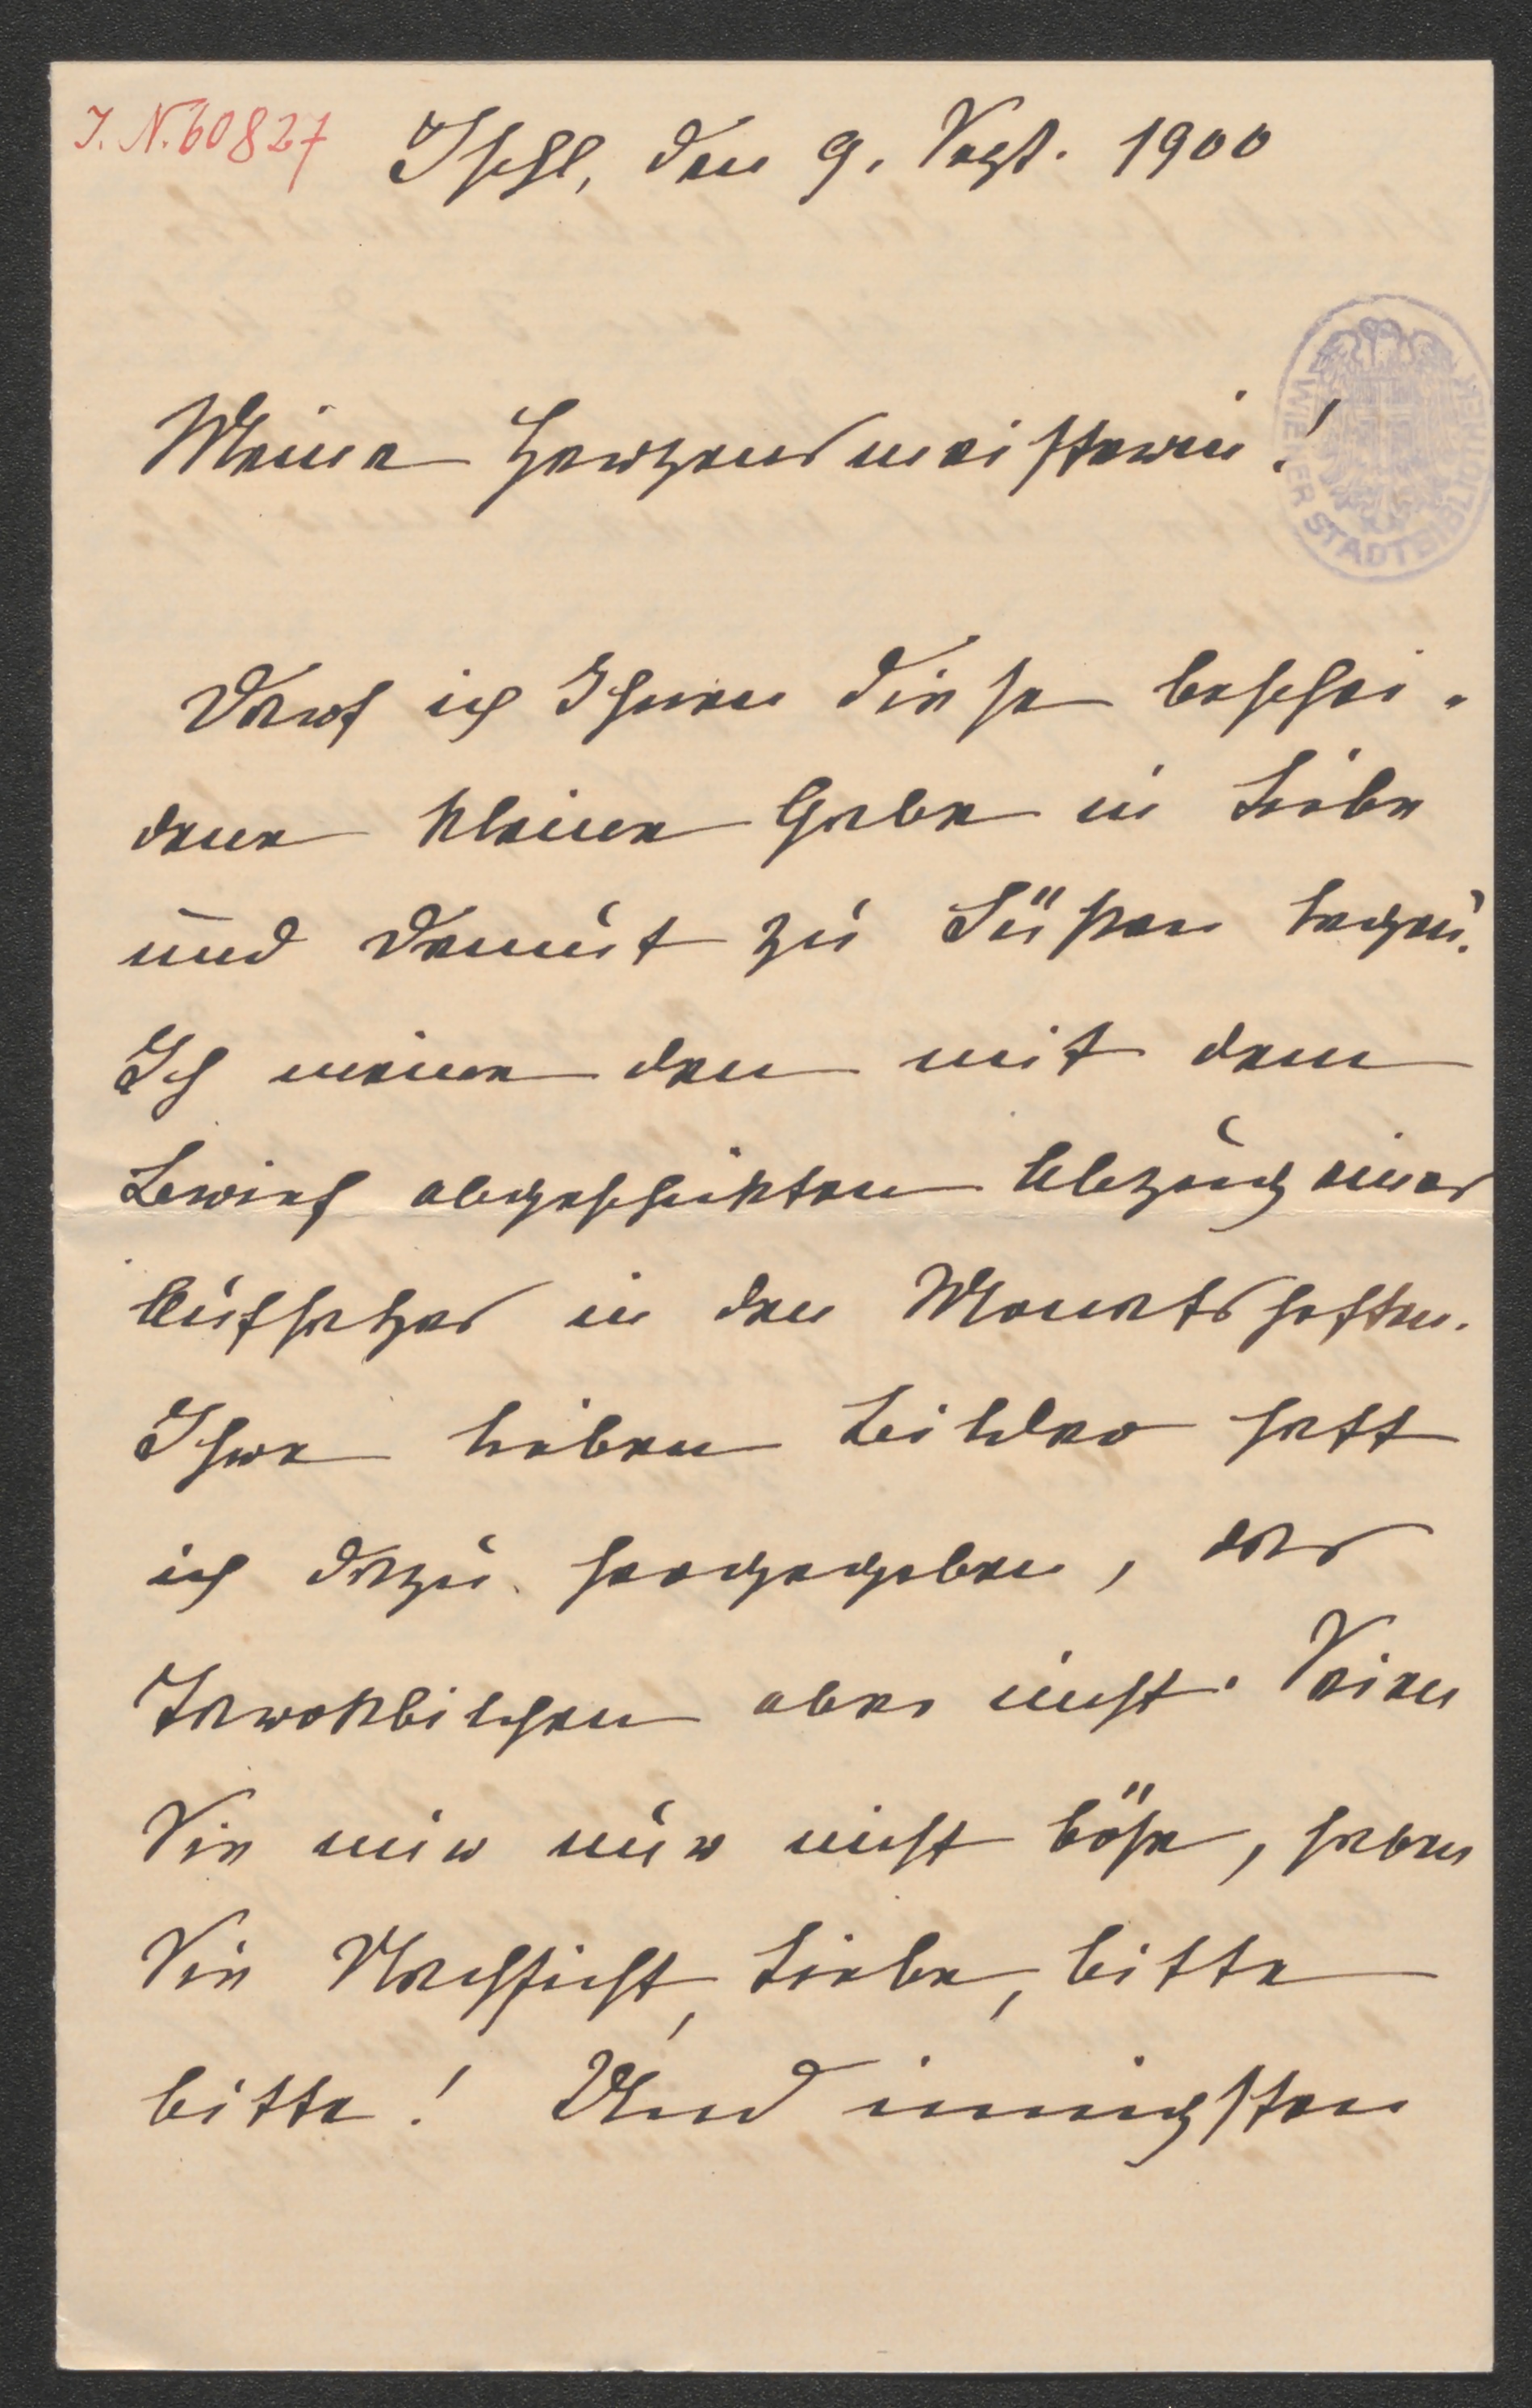 I. N. 60827
Ischl, den 9. Sept. 1900
WIENER STADTBIBLIOTHEK
Meine Herzensmeisterin!
Darf ich Ihnen diese beschei-
dene kleine Gabe in Liebe
und Demut zu Füßen legen.
Ich meine den mit dem
Brief abgeschickten Abzug eines
Aufsatzes in den Monatsheften.
Ihre lieben Bilder hatt
ich dazu hergegeben, das
aber nicht. Seien
Sie mir nur nicht böse, haben
Sie Nachsicht, Liebe, bitte
bitte! Und innigsten